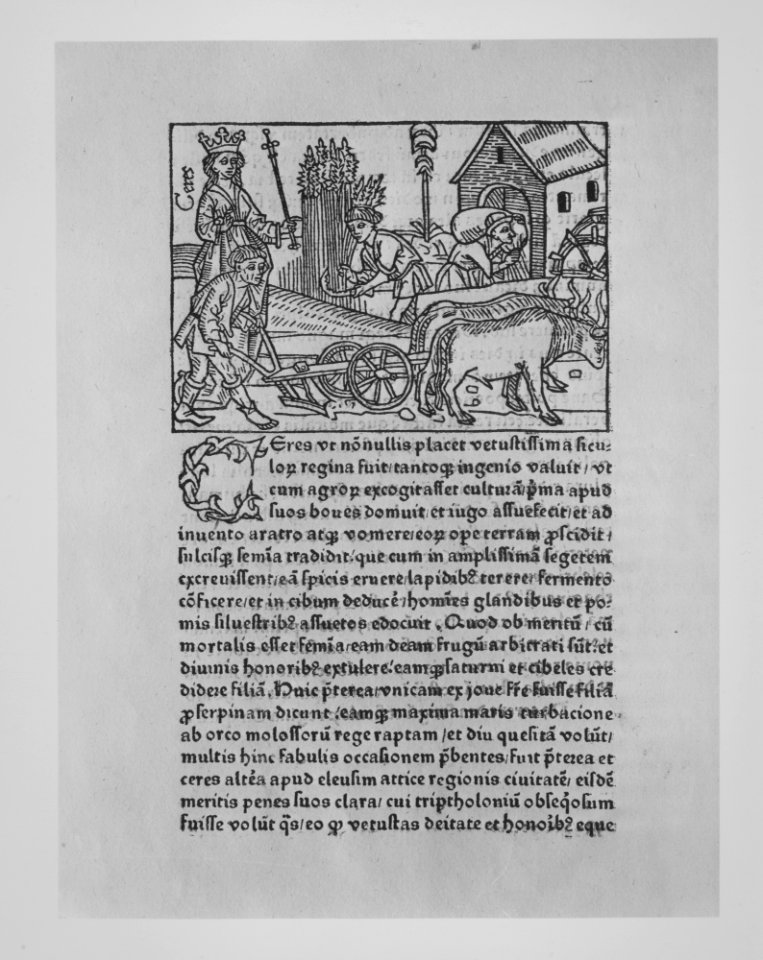 Ceres
CEres vt nõnullis placet vetustissima sicu⸗
loꝝ regina fuit/tantoqꝫ ingenio valuit/vt
cum agroꝝ excogitasset culturã/p̃ma apud
suos boues domuit/et iugo assuefecit/et ad
inuento aratro atqꝫ vomere/eoꝝ ope terram ꝓscidit/
sulcisqꝫ semĩa tradidit/que cum in amplissimã segetem
excreuissent/eã spicis eruere/lapidibꝰ terere/fermento
cõficere/et in cibum deducẽ/homĩes glandibus et po⸗
mis siluestribꝰ assuetos edocuit. Quod ob meritũ/cũ
mortalis esset femĩa/eam deam frugũ arbitrati sũt/et
diuinis honoribꝰ extulere/eamqꝫ saturni et cibeles cre
didere filiã. Huic p̃terea vnicam ex ioue fr̃e fuisse filiã
ꝓserpinam dicunt/eamqꝫ maxima matris turbacione
ab orco molossorũ rege raptam/et diu quesitã volũt/
multis hinc fabulis occasionem p̃bentes/fuit p̃terea et
ceres altẽa apud eleusim attice regionis ciuitatẽ/eisdẽ
meritis penes suos clara/cui triptholoniũ obseq̃osum
fuisse volũt q̃s/eo ꝙ vetustas deitate et honoribꝰ eque